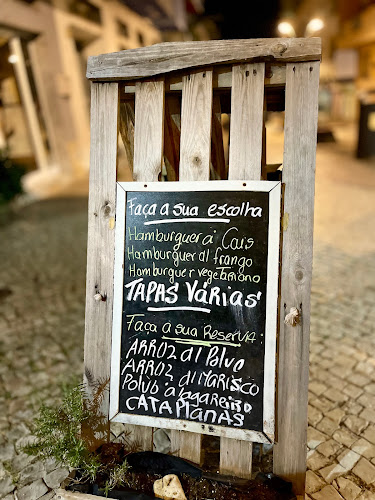 Faça a sua escolha
Hamburguer à Cais
Hamburguer d/ frango
Hamburguer vegetariano
TAPAS Várias
Faça a sua Reserva:
ARROZ d/ Polvo
ARROZ d/ MARisco
Polvo à lagareiro
CATAPlanas